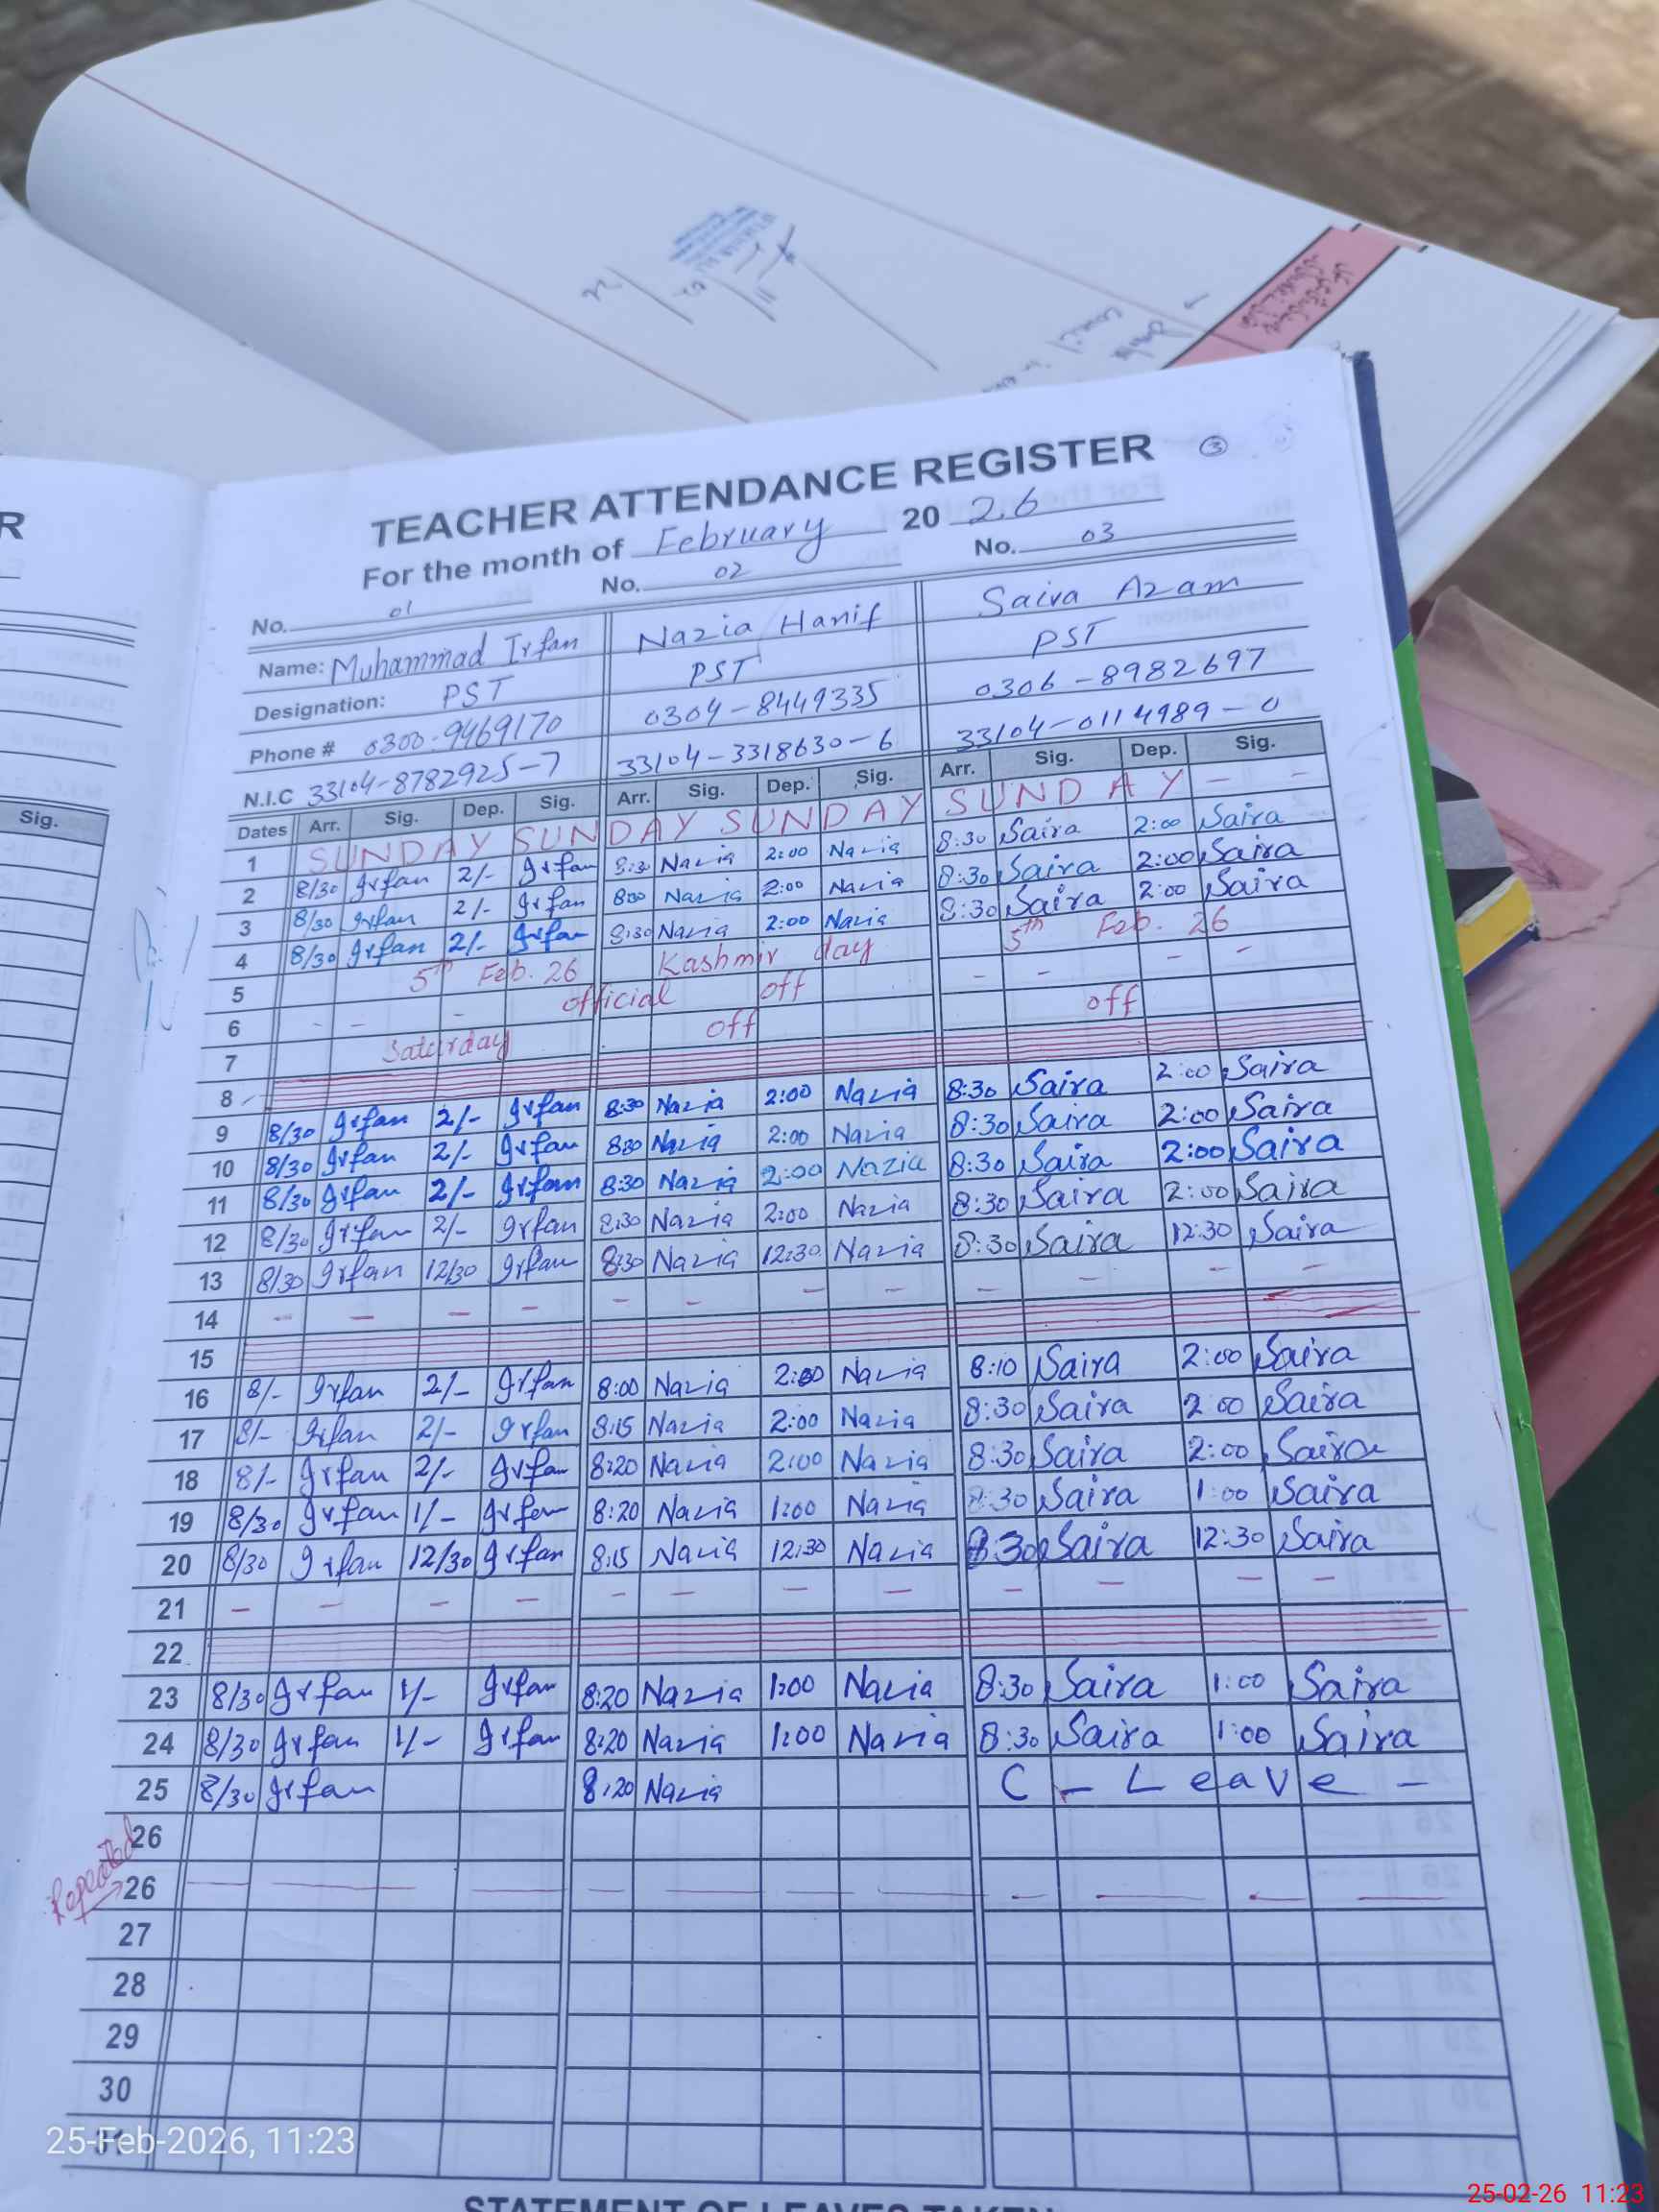 R
Sig.
TEACHER ATTENDANCE REGISTER ③
For the month of February 2026
No. 01 No. 02 No. 03
Name: Muhammad Irfan Nazia Hanif Saira Azam
Designation: PST PST PST
Phone # 0300-9469170 0304-8449335 0306-8982697
N.I.C 33104-8782925-7 33104-3318630-6 33104-0114989-0
Dates Arr. Sig. Dep. Sig. Arr. Sig. Dep. Sig. Arr. Sig. Dep. Sig.
1 SUNDAY SUNDAY SUNDAY SUNDAY - -
2 8/30 Irfan 2/- Irfan 8:30 Nazia 2:00 Nazia 8:30 Saira 2:00 Saira
3 8/30 Irfan 2/- Irfan 8:30 Nazia 2:00 Nazia 8:30 Saira 2:00 Saira
4 8/30 Irfan 2/- Irfan 8:30 Nazia 2:00 Nazia 8:30 Saira 2:00 Saira
5 5th Feb. 26 Kashmir day 5th Feb. 26
6 - - - official off - - - -
7 Saturday off off
8
9 8/30 Irfan 2/- Irfan 8:30 Nazia 2:00 Nazia 8:30 Saira 2:00 Saira
10 8/30 Irfan 2/- Irfan 8:30 Nazia 2:00 Nazia 8:30 Saira 2:00 Saira
11 8/30 Irfan 2/- Irfan 8:30 Nazia 2:00 Nazia 8:30 Saira 2:00 Saira
12 8/30 Irfan 2/- Irfan 8:30 Nazia 2:00 Nazia 8:30 Saira 2:00 Saira
13 8/30 Irfan 12/30 Irfan 8:30 Nazia 12:30 Nazia 8:30 Saira 12:30 Saira
14 - - - - - - - - - - - -
15
16 8/- Irfan 2/- Irfan 8:00 Nazia 2:00 Nazia 8:10 Saira 2:00 Saira
17 8/- Irfan 2/- Irfan 8:15 Nazia 2:00 Nazia 8:30 Saira 2:00 Saira
18 8/- Irfan 2/- Irfan 8:20 Nazia 2:00 Nazia 8:30 Saira 2:00 Saira
19 8/30 Irfan 1/- Irfan 8:20 Nazia 1:00 Nazia 8:30 Saira 1:00 Saira
20 8/30 Irfan 12/30 Irfan 8:15 Nazia 12:30 Nazia 8:30 Saira 12:30 Saira
21 - - - - - - - - - - - -
22
23 8/30 Irfan 1/- Irfan 8:20 Nazia 1:00 Nazia 8:30 Saira 1:00 Saira
24 8/30 Irfan 1/- Irfan 8:20 Nazia 1:00 Nazia 8:30 Saira 1:00 Saira
25 8/30 Irfan 8:20 Nazia C - Leave -
26
Repeated → 26
27
28
29
30
31
STATEMENT OF LEAVES TAKEN
25-Feb-2026, 11:23
25-02-26 11:23